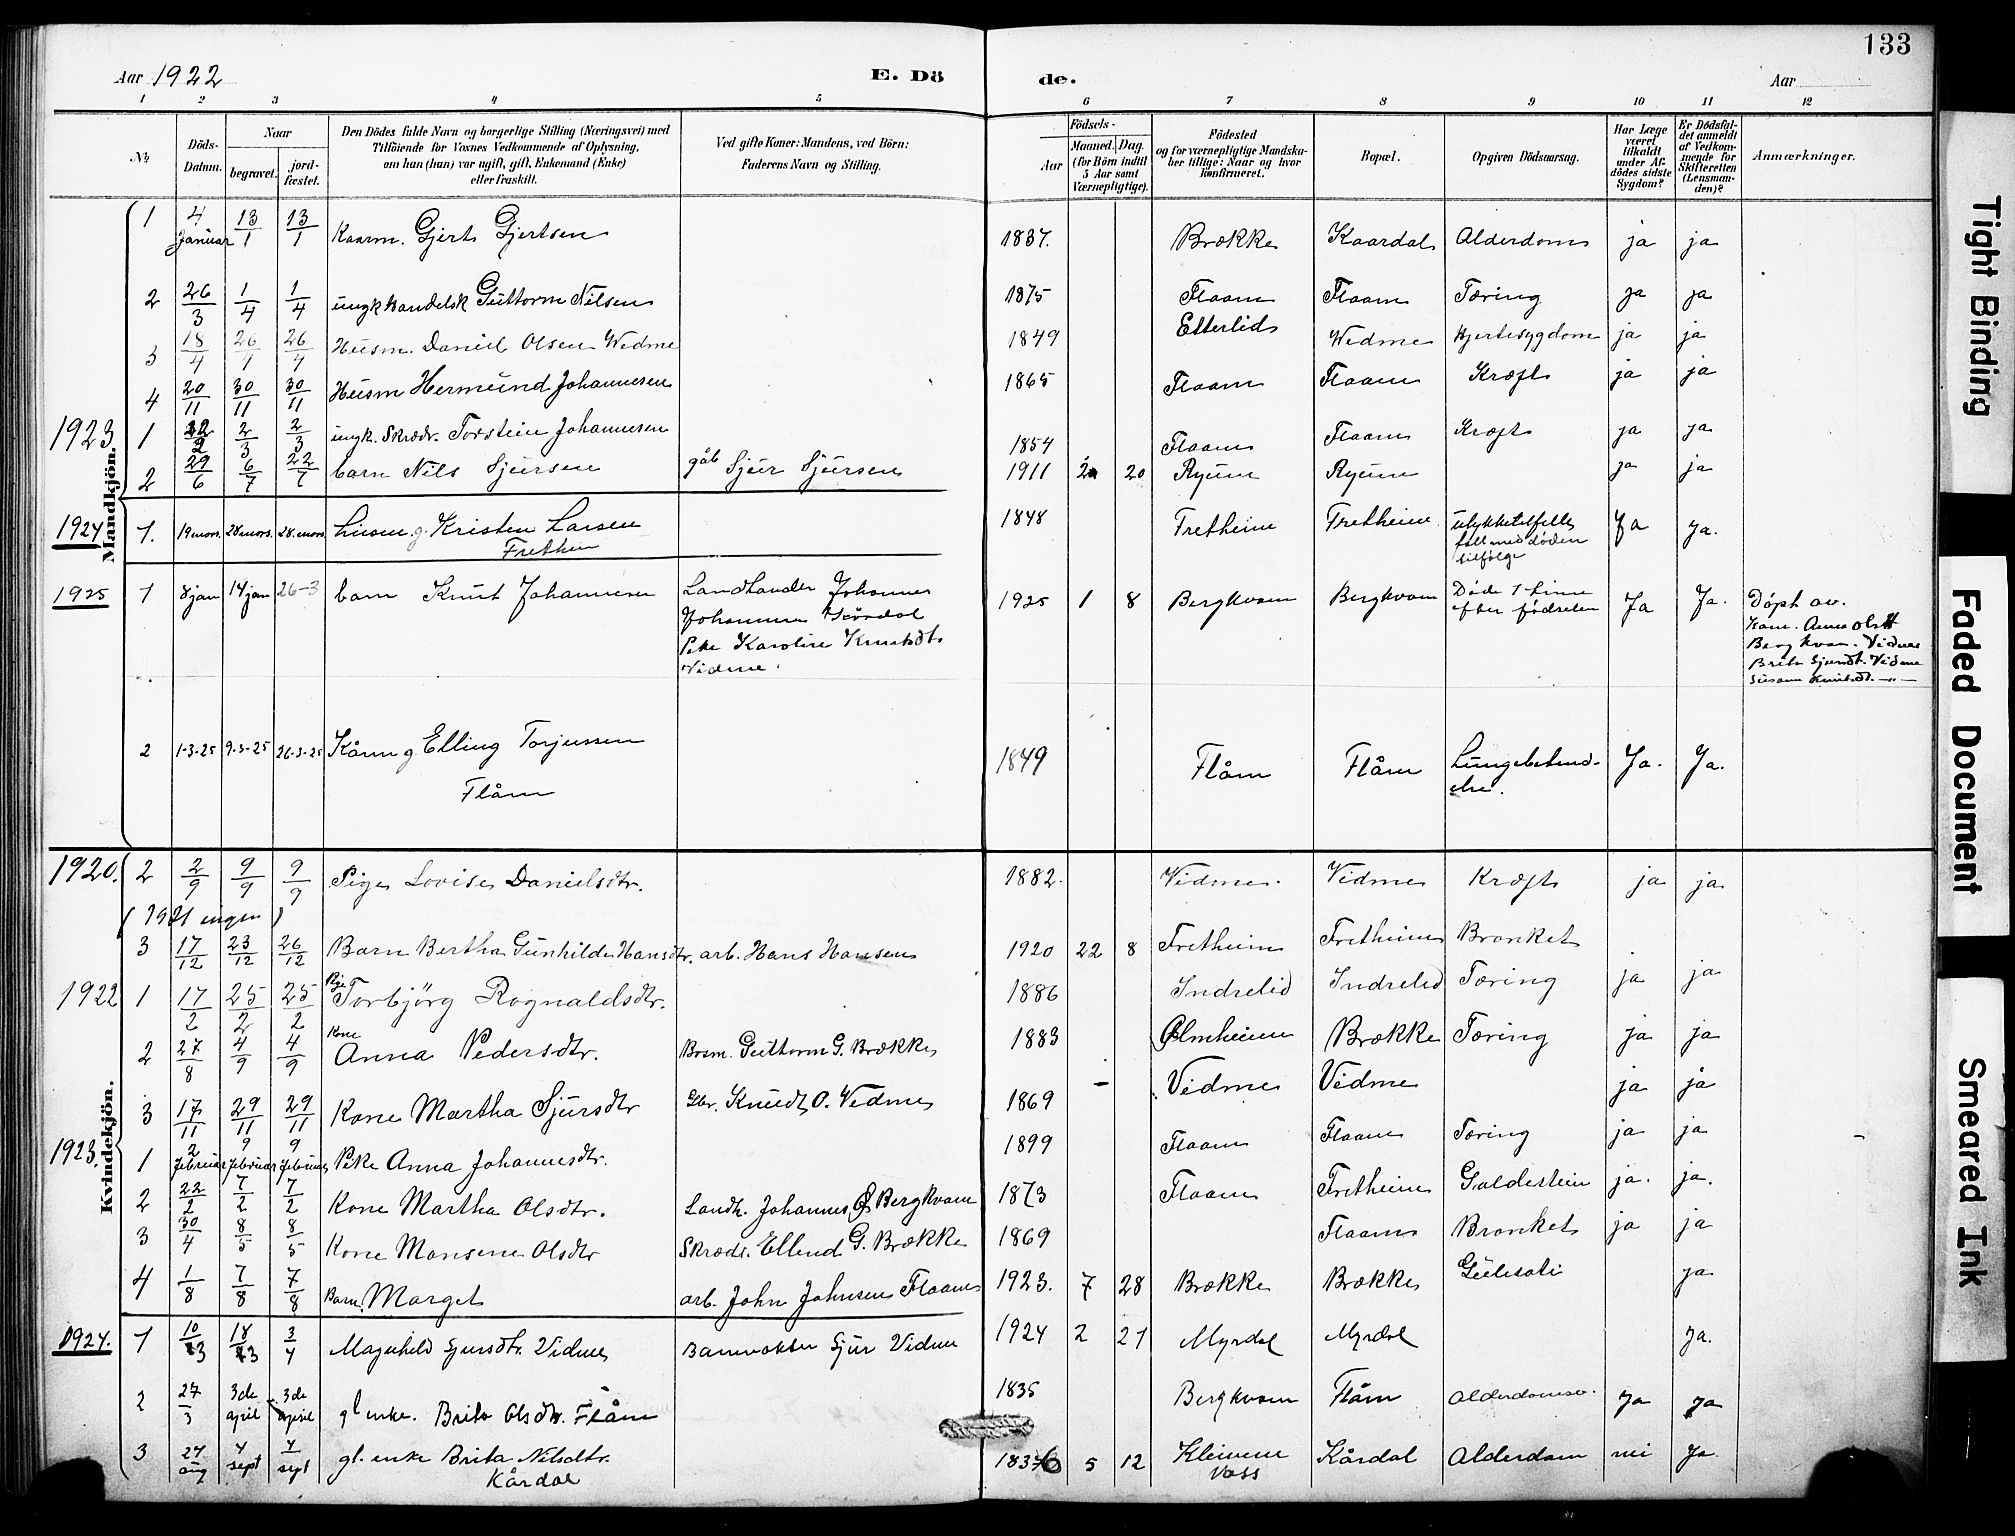 133
Aar 1922
E. Dö
de.
Aar
1 2 3 4 5 6 7 8 9 10 11 12
No
Döds-
Datum.
Naar
begravet.
jord-
fæstet.
Den Dödes fulde Navn og borgerlige Stilling (Næringsvei) med
Tilföiende for Voxnes Vedkommende af Oplysning,
om han (hun) var ugift, gift, Enkemand (Enke)
eller fraskilt.
Ved gifte Koner: Mandens, ved Börn:
Faderens Navn og Stilling.
Födsels-
Aar
Maaned. Dag.
(for Börn indtil
5 Aar samt
Værnepligtige).
Födested
og for værnepligtige Mandska-
ber tillige: Naar og hvor
konfirmeret.
Bopæl.
Opgiven Dödsaarsag.
Har Læge
været
tilkaldt
under Af-
dödes sidste
Sygdom?
Er Dödsfal-
det anmeldt
af Vedkom-
mende for
Skifteretten
(Lensman-
den)?
Anmærkninger.
Mandkjön.
1 4 Januar 13/1 13/1 Kaarm. Gjert Gjertsen 1837. Brække Kaardal Alderdom ja ja
2 26/3 1/4 1/4 ungk handelsk Guttorm Nilsen 1875 Flaam Flaam Tæring ja ja
3 18/4 26/4 26/4 Husm. Daniel Olsen Vidme 1849 Etterlid Vidme Hjertesygdom ja ja
4 20/11 30/11 30/11 Husm Hermund Johannesen 1865 Flaam Flaam Kræft ja ja
1923 1 2/3 2/3 ungk. Skræd. Torstein Johannesen 1854 Flaam Flaam Kræft ja ja
2 29/6 6/7 22/7 barn Nils Sjursen gåb Sjur Sjursen 1911 20 Ryum Ryum ja ja
1924 1. 19 mars. 28 mars. 28. mars. g. Kristen Larsen 1848 Fretheim Fretheim ulykketilfelle Ja ja.
Frethim
fall med døden
tilfølge
1925 1 8 jan 14 jan 26-3 barn Knut Johannesen Landhandler Johannes 1925 1 8 Bergkvam Bergkvam Døde 1 time Ja Ja. Døpt av.
efter fødselen
Pike Karoline Knutsdt.
Vidme.
Bergkvam. Vidme
Brita Sjursdt. Vidme
2 1-3-25 9-3-25 26-3-25 Kårm g Elling Torjussen 1849 Flåm Flåm Lungebetend- Ja. Ja.
Flåm
else.
Kvindekjön.
1920. 2 2/9 9/9 9/9 Pige Lovise Danielsdtr. 1882. Vidme. Vidme Kræft ja ja
(1921 ingen)
3 17/12 23/12 26/12 Barn Bertha Gunhilde Hansdtr. arb. Hans Hansen 1920 22 8 Fretheim Fretheim Bronket
1922 1 17/2 25/2 25/2 Pige Torbjörg Rognaldsdtr. 1886 Indrelid Indrelid Tæring ja ja
2 27/8 4/9 4/9 Kone Anna Pedersdtr. Brsm. Guttorm G. Brække 1883 Ølmheim Brække Tæring ja ja
3 17/11 29/11 29/11 Kone Martha Sjursdtr Gbr. Knudt O. Vidme 1869 - Vidme Vidme ja ja
1923. 1 2 februar 9 februar 9 februar Pike Anna Johannesdtr. 1899 Flaam Flaam Tæring ja ja
2 22/2 7/2 7/2 Kone Martha Olsdtr. Landh. Johannes Bergkvam 1873 Flaam Fretheim Galdestein ja. ja.
3 30/4 8/5 8/5 Kone Mansene Olsdtr Skræd. Ellend G. Brække 1869 Flaam Bronket ja ja
4 1/8 7/8 7/8 Barn. Marget arb. John Johnsen Flaam 1923. 7 28 Brække Brække ja
1924. 1 10/3 18/3 3/4 Magnhild Sjursdtr. Vidme Banevokter Sjur Vidme 1924 2 27 Myrdal Myrdal ja.
2 27/3 3de april 3de april gl enke. Brita Olsdtr. Flåm 1835 Bergkvam Flåm Alderdomssv. Ja Ja
3 27 aug 4 sept 4 sept gl. enke Brita Nilsdtr. 1836 5 12 Kleivene Kårdal Alderdom nei Ja
Kårdal
Voss
Tight Binding
Faded Document
Smeared Ink